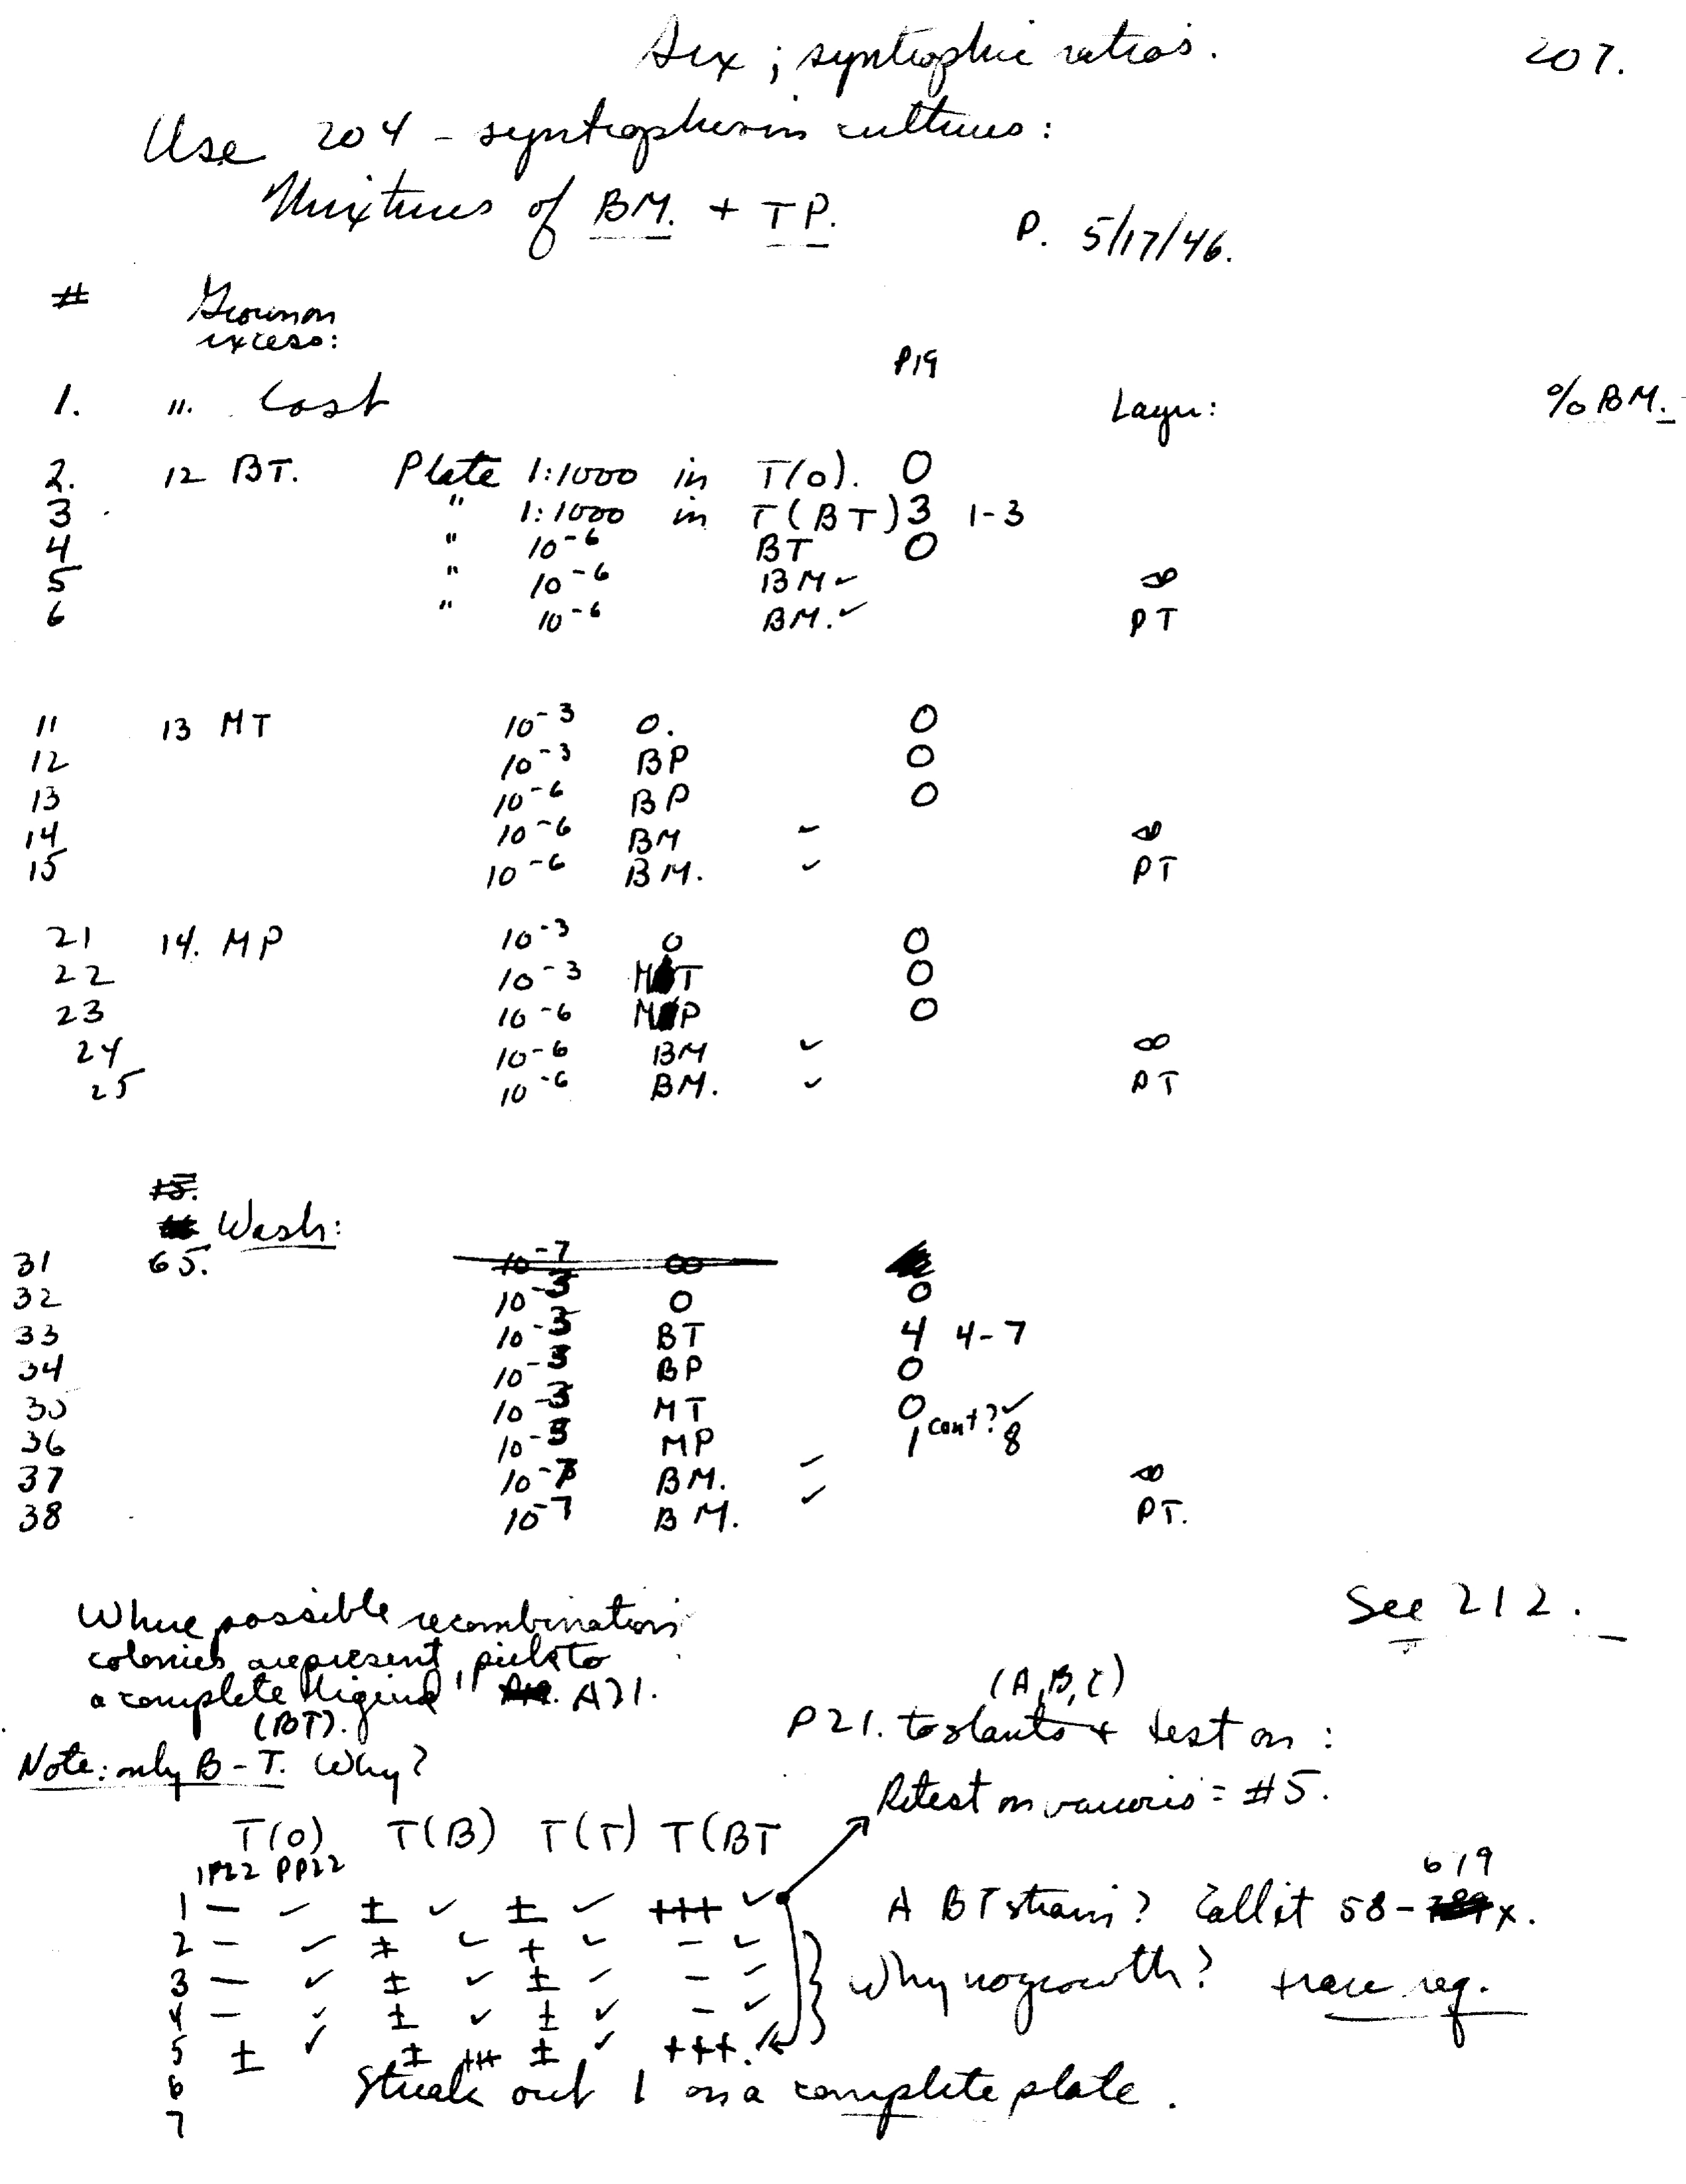 Sex ; syntrophic ratios. 207.
Use 204 - syntrophism cultures:
Mixtures of BM. + TP. P. 5/17/46.
# Grown on
excess:
P19
1. 11. Lost Layer: % BM.
2. 12 BT. Plate 1:1000 in T(o). 0
3 " 1:1000 in T(BT) 3 1-3
4 " 10-6 BT 0
5 " 10-6 BM ✓ ∞
6 " 10-6 BM. ✓ PT
11 13 MT 10-3 0. 0
12 10-3 BP 0
13 10-6 BP 0
14 10-6 BM ✓ ∞
15 10-6 BM. ✓ PT
21 14. MP 10-3 0 0
22 10-3 MT 0
23 10-6 MP 0
24 10-6 BM ✓ ∞
25 10-6 BM. ✓ PT
15.
Wash:
31 65. 10-7 ∞
32 10-3 0 0
33 10-3 BT 4 4-7
34 10-3 BP 0
35 10-3 MT 0
36 10-3 MP 1 cont? ✓ 8
37 10-7 BM. ✓ ∞
38 10-7 BM. ✓ PT.
See 212.
Where possible recombination
colonies are present, pick to
a complete A21.
(BT).
(A,B,C)
P21. to slants + test on :
Note: only B-T. Why?
Retest on various = #5.
T(o) T(B) T(T) T(BT
1P22 PP22
1 — ✓ ± ✓ ± ✓ +++ ✓
619
A BT strain? Call it 58- x.
2 — ✓ ± ✓ + ✓ — ✓
3 — ✓ ± ✓ ± ✓ — ✓
Why no growth? trace req.
4 — ✓ ± ✓ ± ✓ — ✓
5 ± ✓ ± +++ ± ✓ +++.
6 Streak out 1 on a complete plate.
7